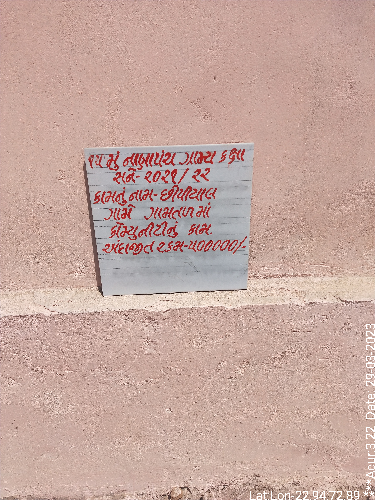 ૧૫ મું નાણાપંચ ગ્રામ્ય કક્ષા
સને- ૨૦૨૧/૨૨
કામનું નામ- છીપીયાલ
ગામે ગામતળ માં
કોમ્યુનીટીનું કામ
અંદાજીત રકમ-૫૦૦૦૦૦/-
Lat Lon-22.94 72.89
***Acur 3.22 Date: 29-03-2023